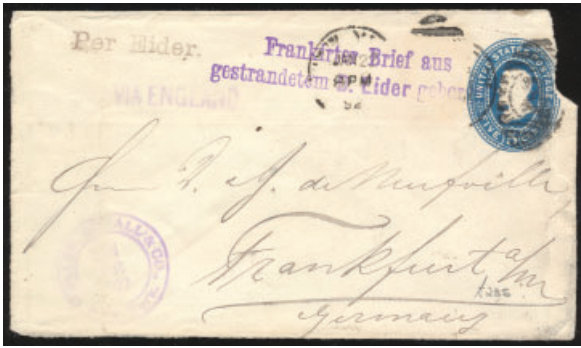 Per Eider.
Frankirter Brief aus
gestrandetem D. Eider gebor
VIA ENGLAND
JAN 2
PM
92
UNITED STATES POSTAGE
FIVE
de Neufville,
Frankfurt a/m
Germany